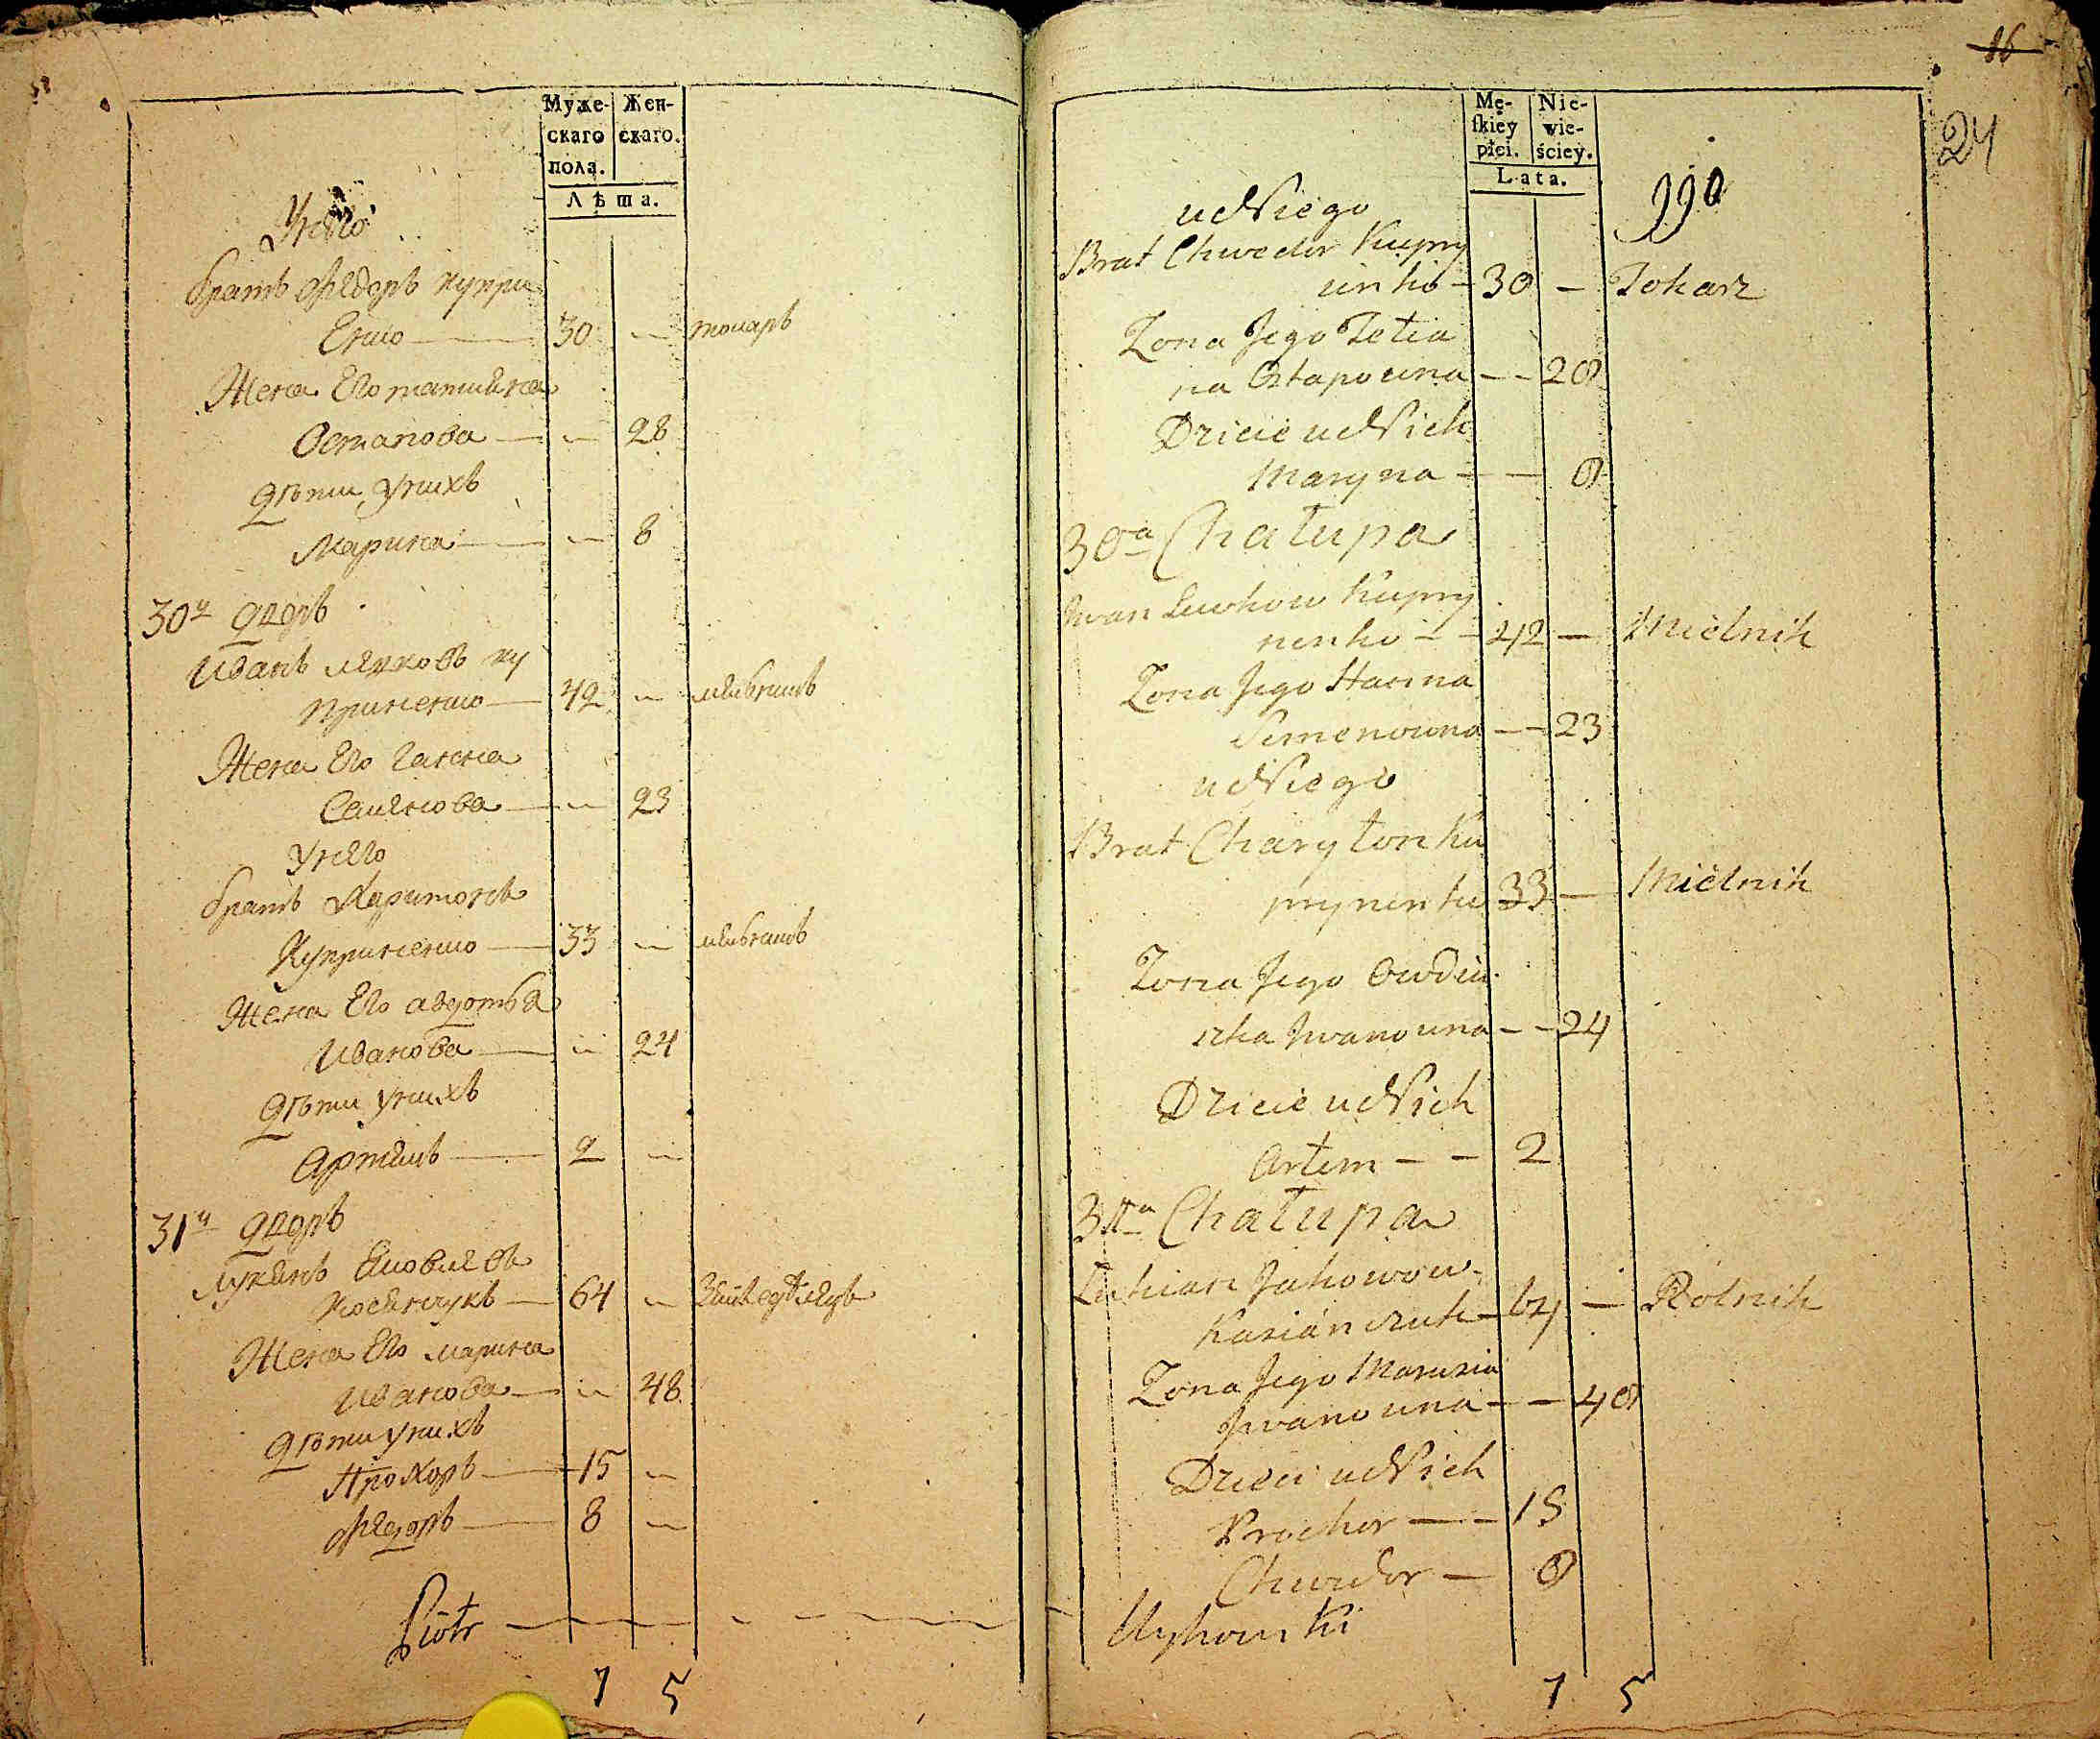 Муже- Жен-
скаго скаго.
пола.
Лѣта.
У него
братъ Федоръ Купри
Енко — 30 — токаръ
Жена Его татияна
Остапова — — 28
Дѣти у нихъ
Марина — — 8
30й дворъ
Иванъ луковъ ку
приненко — 42 — мѣлникъ
Жена Его ганна
Семенова — — 23
У него
братъ Харитонъ
Куприненко — 33 — мѣлникъ
Жена Его авдотья
Иванова — — 24
Дѣти у нихъ
Артемъ — 2 —
31й дворъ
лукянъ Яковлевъ
Косянчукъ — 64 —
Жена Его марина
Иванова — — 48
Дѣти у нихъ
Прохоръ — 15 —
Федоръ — 8 —
Piotr — — — — —
7 5
16
24
Mę- Nie-
skiey wie-
płci. ściey.
Lata.
990
u Niego
Brat Chwedor Kupry
enko — 30 — Tokarz
Zona Jego Tetia
na Ostapowna — — 28
Dziecie u Nich
Maryna — — 8
30a Chałupa
Iwan Lukow Kupry
nenko — — 42 — Mielnik
Zona Jego Hanna
Semenowna — — 23
u Niego
Brat Charyton Ku
prynenko 33 — Mielnik
Zona Jego Owdiu
szka Iwanowna — — 24
Dziecie u Nich
Artem — — 2
31a Chałupa
Lukian Jakowow
Kasiańczuk — 64 — Rolnik
Zona Jego Marusia
Iwanowna — — 48
Dzieci u Nich
Prochor — — 15
Chwedor — 8
7 5